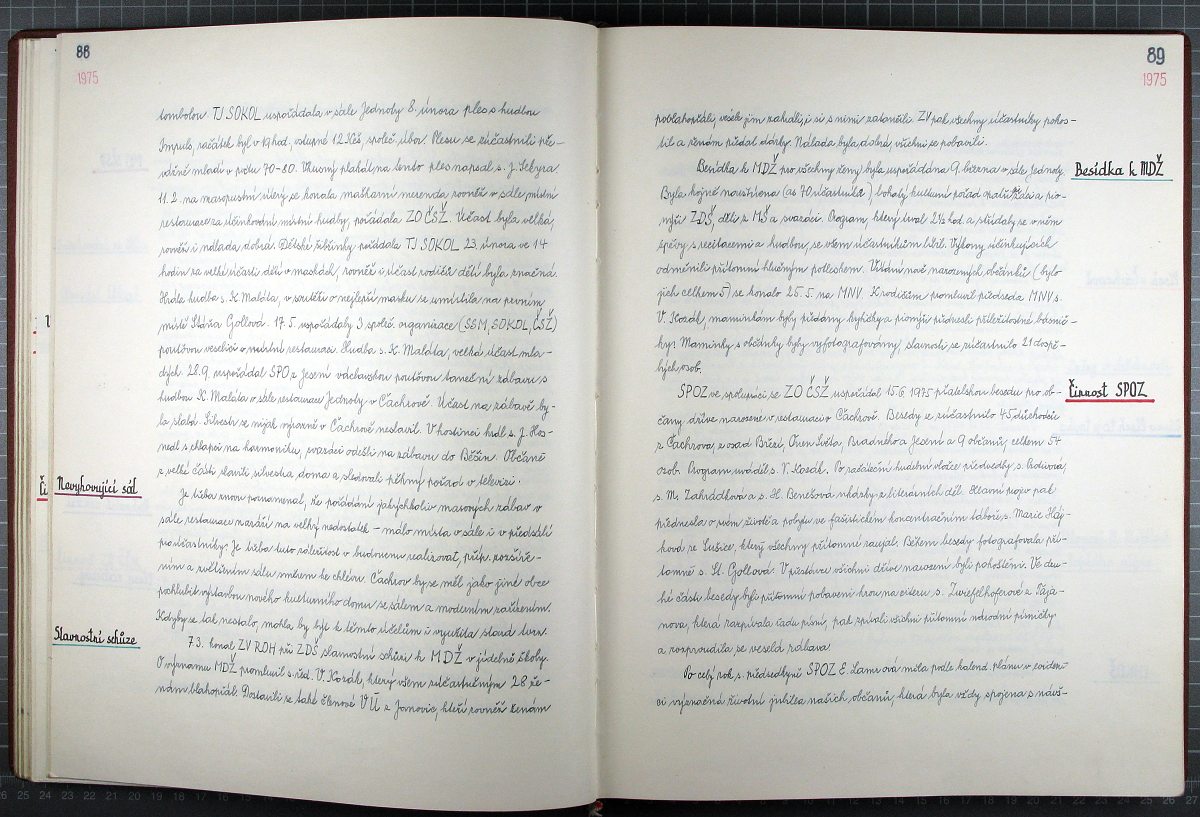 88
1975
tombolou. TJ SOKOL uspořádala v sále Jednoty 8. února ples s hudbou
Impuls, začátek byl v 19 hod, vstupné 12 Kčs, společ. úbor. Plesu se zúčastnili pře-
vážně mladí v počtu 70-80. Vkusný plakát na tento ples napsal s. J. Sekyra
11.2. na masopustní úterý se konala maškarní merenda rovněž v sále místní
restaurace za účinkování místní hudby, pořádala ZO ČSŽ. Účast byla velká,
rovněž i nálada dobrá. Dětské šibřinky pořádala TJ SOKOL 23. února ve 14
hodin za velké účasti dětí v maskách, rovněž i účast rodičů dětí byla značná.
Hrála hudba s. K. Maláta, v soutěži o nejlepší masku se umístila na prvním
místě Stáňa Gollová. 17.5. uspořádaly 3 společ. organizace (SSM, SOKOL, ČSŽ)
pouťovou veselici v místní restauraci. Hudba s. K. Maláta, velká účast mla-
dých. 28.9. uspořádal SPO z Jesení václavskou pouťovou taneční zábavu s
hudbou K. Maláta v sále restaurace Jednoty v Čachrově. Účast na zábavě by-
la slabá. Silvestr se nijak výrazně v Čachrově neslavil. V hostinci hrál s. J. Hos-
nedl s chlapci na harmoniku, svazáci odešli na zábavu do Běšin. Občané
z velké části slavili silvestra doma a sledovali pěkný pořad v televisi.
Nevyhovující sál
Je třeba znovu poznamenat, že pořádání jakýchkoliv masových zábav v
sále restaurace naráží na velký nedostatek – málo místa v sále i v předsálí
pro účastníky. Je třeba tuto záležitost v budoucnu realizovat, příp. rozšíře-
ním a zvětšením sálu směrem ke chlévu. Čachrov by se měl jako jiné obce
pochlubit výstavbou nového kulturního domu se sálem a moderním zařízením.
Kdyby se tak nestalo, mohla by být k těmto účelům i využita stará tvrz.
Slavnostní schůze
7.3. konal ZV ROH při ZDŠ slavnostní schůzi k MDŽ v jídelně školy.
O významu MDŽ promluvil s. řed. V. Kozák, který všem zúčastněným 28 že-
nám blahopřál. Dostavili se také členové VÚ z Janovic, kteří rovněž ženám
89
1975
poblahopřáli, vesele jim zahráli, i si s nimi zatančili. ZV pak všechny účastníky pohos-
til a ženám předal dárky. Nálada byla dobrá, všichni se pobavili.
Besídka k MDŽ
Besídka k MDŽ pro všechny ženy byla uspořádána 9. března v sále Jednoty.
Byla hojně navštívena (as 70 účastníků), bohatý kulturní pořad
ZDŠ, děti z MŠ a svazáci. Program, který trval 2½ hod. a střídaly se v něm
zpěvy s recitacemi a hudbou, se všem účastníkům líbil. Výkony účinkujících
odměnili přítomní hlučným potleskem. Vítání nově narozených občánků (bylo
jich celkem 5) se konalo 25.5. na MNV. K rodičům promluvil předseda MNV s.
V. Kozák, maminkám byly předány kytičky a pionýři přednesli příležitostné básnič-
ky. Maminky s občánky byly vyfotografovány, slavnosti se zúčastnilo 21 dospě-
lých osob.
Činnost SPOZ
SPOZ ve spolupráci se ZO ČSŽ uspořádal 15.6.1975 přátelskou besedu pro ob-
čany dříve narozené v restauraci v Čachrově. Besedy se zúčastnilo 45 důchodců
z Čachrova, z osad Březí, Chvalšovic, Bradného a Jesení a 9 občanů, celkem 54
osob. Program uváděl s. V. Kozák. Po začáteční hudební vložce předvedly s.
s. M. Zahrádková a s. H. Benešová ukázky z literárních děl. Hlavní projev pak
přednesla o svém životě a pobytu ve fašistickém koncentračním táboře s. Marie Háj-
ková ze Sušice, který všechny přítomné zaujal. Během besedy fotografovala pří-
tomné s. St. Gollová. V přestávce všichni dříve narození byli pohoštěni. Ve dru-
hé části besedy byli přítomni pobaveni hrou na citeru s. Zwiefelhoferové z Zája-
nova, která zazpívala řadu písní, pak zpívali všichni přítomní národní písničky
a rozproudila se veselá zábava.
Po celý rok s. předsedkyně SPOZ E. Lamrová měla podle kalend. plánu v eviden-
ci význačná životní jubilea našich občanů, která byla vždy spojena s návš-